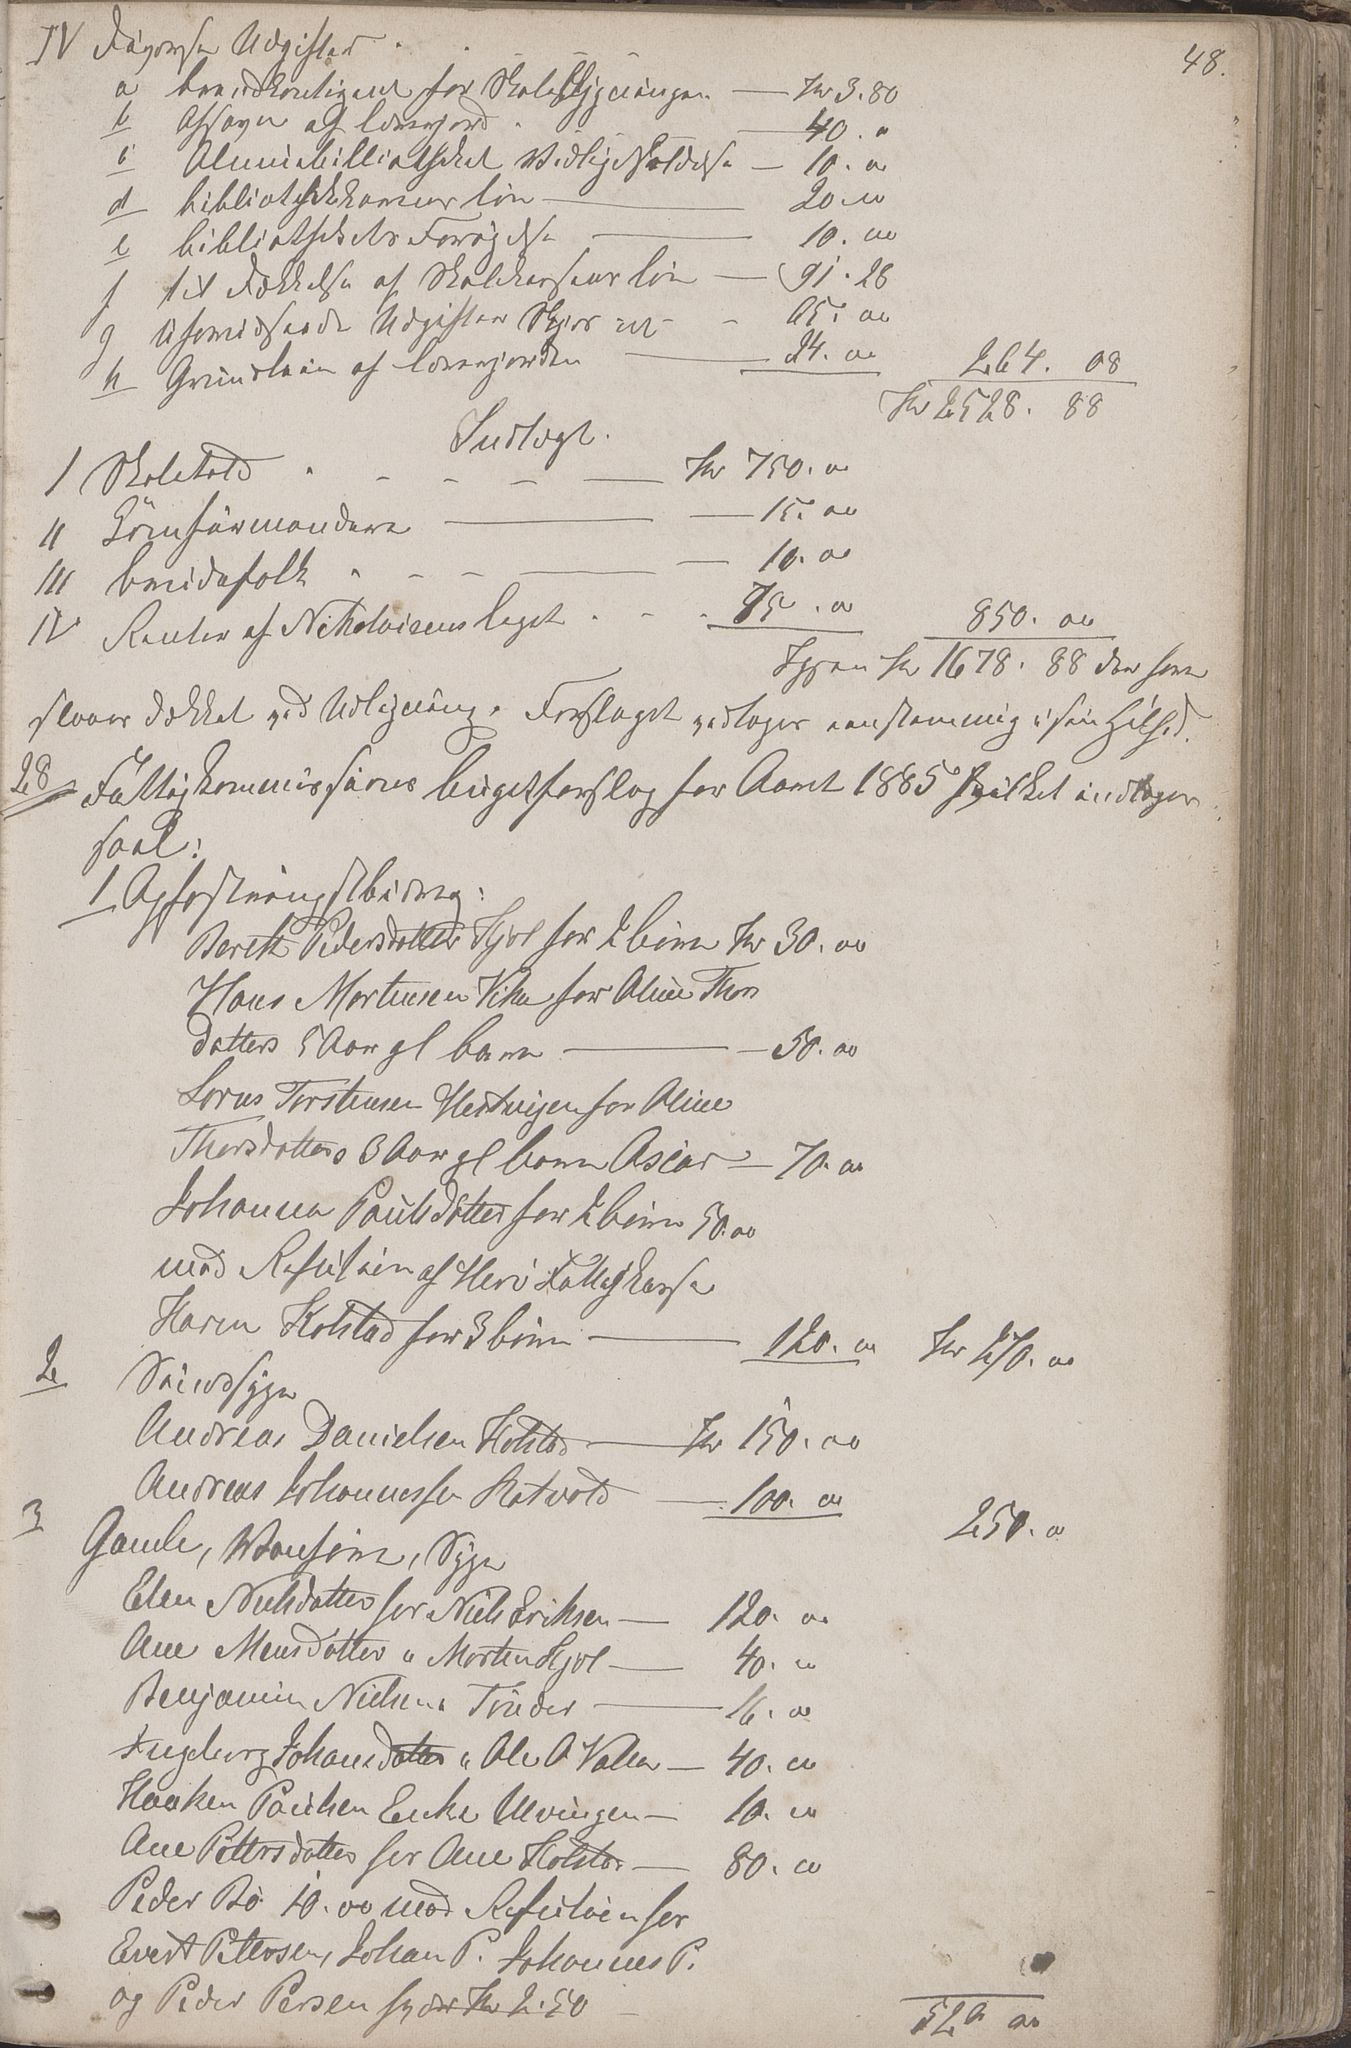 48.
IV Øvrige Udgifter
a brandkontigent for Skolebygningen — Kr 3.80
b Afgavn af lærerjord — 40. "
c Almuebibliothekets Vedligeholdelse — 10. 00
d bibliothekarens løn — 20. 00
e bibliothekets Forøgelse — 10. 00
f til Dækkelse af Skolekassens løn — 91. 28
g uforudseede Udgifter — 65. 00
h Grundlein af lærerjorden — 24. 00 264. 08
Kr 2528. 88
Indtægt.
I Skoletold — Kr 750. 00
II Kornformændene — 15. 00
III brudefolk — 10. 00
IV Renter af Nikolaisens legat — 75. 00 850. 00
Igjen Kr 1678. 88 der som
staaes dækket ved Udligning. Forslaget vedtoges eenstemmig i sin Helhed.
28 Fattigkommissionens budgetforslag for Aaret 1885 hvilket indtoges
saal:
1 Opfostringsbidrag:
Berith Pedersdatter Hjøl for 2 børn Kr 30. 00
Hans Mortensen Vika for Aline Thors
datters 5 Aar gl barn — 50. 00
Lorns Torstensen for Aline
Thorsdatters 3 Aar gl barn Oscar — 70. 00
Johanna Paulsdatter for 2 børn 50. 00
mod Refusion af Herø Fattigkasse
Karen Kolstad for 3 børn — 120. 00 Kr 270. 00
2 Sindssyge
Andreas Danielsen Holstad — Kr 150. 00
Andreas Johannessen — 100. 00 250. 00
3 Gamle, Vanføre, Syge
Elen Nielsdatter for Niels Eriksen — 120. 00
Ane Monsdatter " Morten Hjøl — 40. 00
Benjamin Nielsen " Tønder — 16. 00
Ingeborg Johansdatter " Ole O Valla — 40. 00
Haaken Paulsen Enke Alvingen — 10. 00
Ane Pettersdatter for Ane Holstad — 80. 00
Peder Bø 10. 00 mod Refusion for
Evert Petersen, Johan P. Johannes P.
og Peder Persen hver Kr 2.50 — 520 00